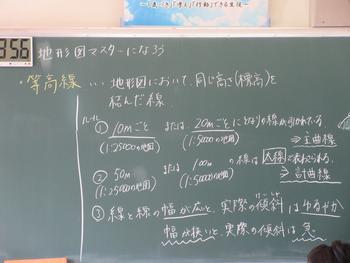 「気づき」「考え」「行動」できる生徒
356
地形図マスターになろう
・等高線… 地形図において、同じ高さ(標高)を
結んだ線
ルール
① 10mごと または 20mごとに となりの線が引かれている
(1:25000の地図) (1:5000の地図) ⇒主曲線
② 50m または 100m の線は 太線で表わされる。
(1:25000の地図) (1:5000の地図) ⇒計曲線
③ 線と線の幅が広いと、実際の傾斜はゆるやか
幅が狭いと、実際の傾斜は急。